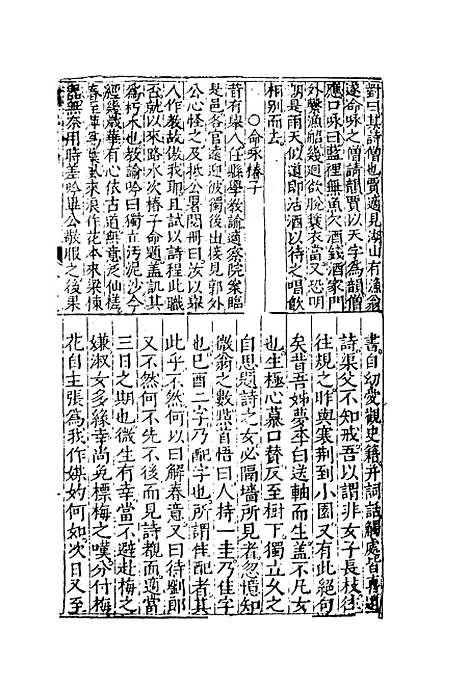 對曰某詩僧也賈適見湖山有漁翁
遂命咏之僧請韻賈以天字為韻僧
應口咏曰籃裡無魚欠酒錢酒家門
外繫漁船幾迴欲脫蓑衣當又恐明
朝是雨天似道即沽酒以待之唱飲
相別而去
○命咏椿子
昔有舉人任縣學教諭適察院案臨
是邑各官遠迎彼獨後出接見郭外
公心怪之及抵公署閱冊曰汝以舉
人作教故傲我耶且試以詩程此職
否就以來路水次椿子命題盖凱其
為朽木也教諭吟曰獨立污泥沙今
經幾歲華有心依古道無意泛仙槎
春至萍為葉冬來浪作花本來梁棟
器無奈用時差吟畢公敬服之後果
書自幼愛觀史籍并詞話觸處皆
詩渠父不知戒吾以謂非女子長枝往
往規之昨與寒荆到小園又有此絕句
矣昔吾姊夢李白送軸而生盖不凡女
也生極心慕口替反至樹下獨立久之
自思題詩之女必隔墻所見者忽憶知
微翁之數驚首悟曰人持一圭乃佳字
也巳酉二字乃配字也所謂佳配者其
此乎不然何以曰解春意又曰待劉郎
又不然何不先不後而見詩覩而適當
三日之期也微生有幸當不避赴梅之
嫌淑女多緣幸尚免標梅之嘆分付梅
花自主張為我作媒妁何如次日又至